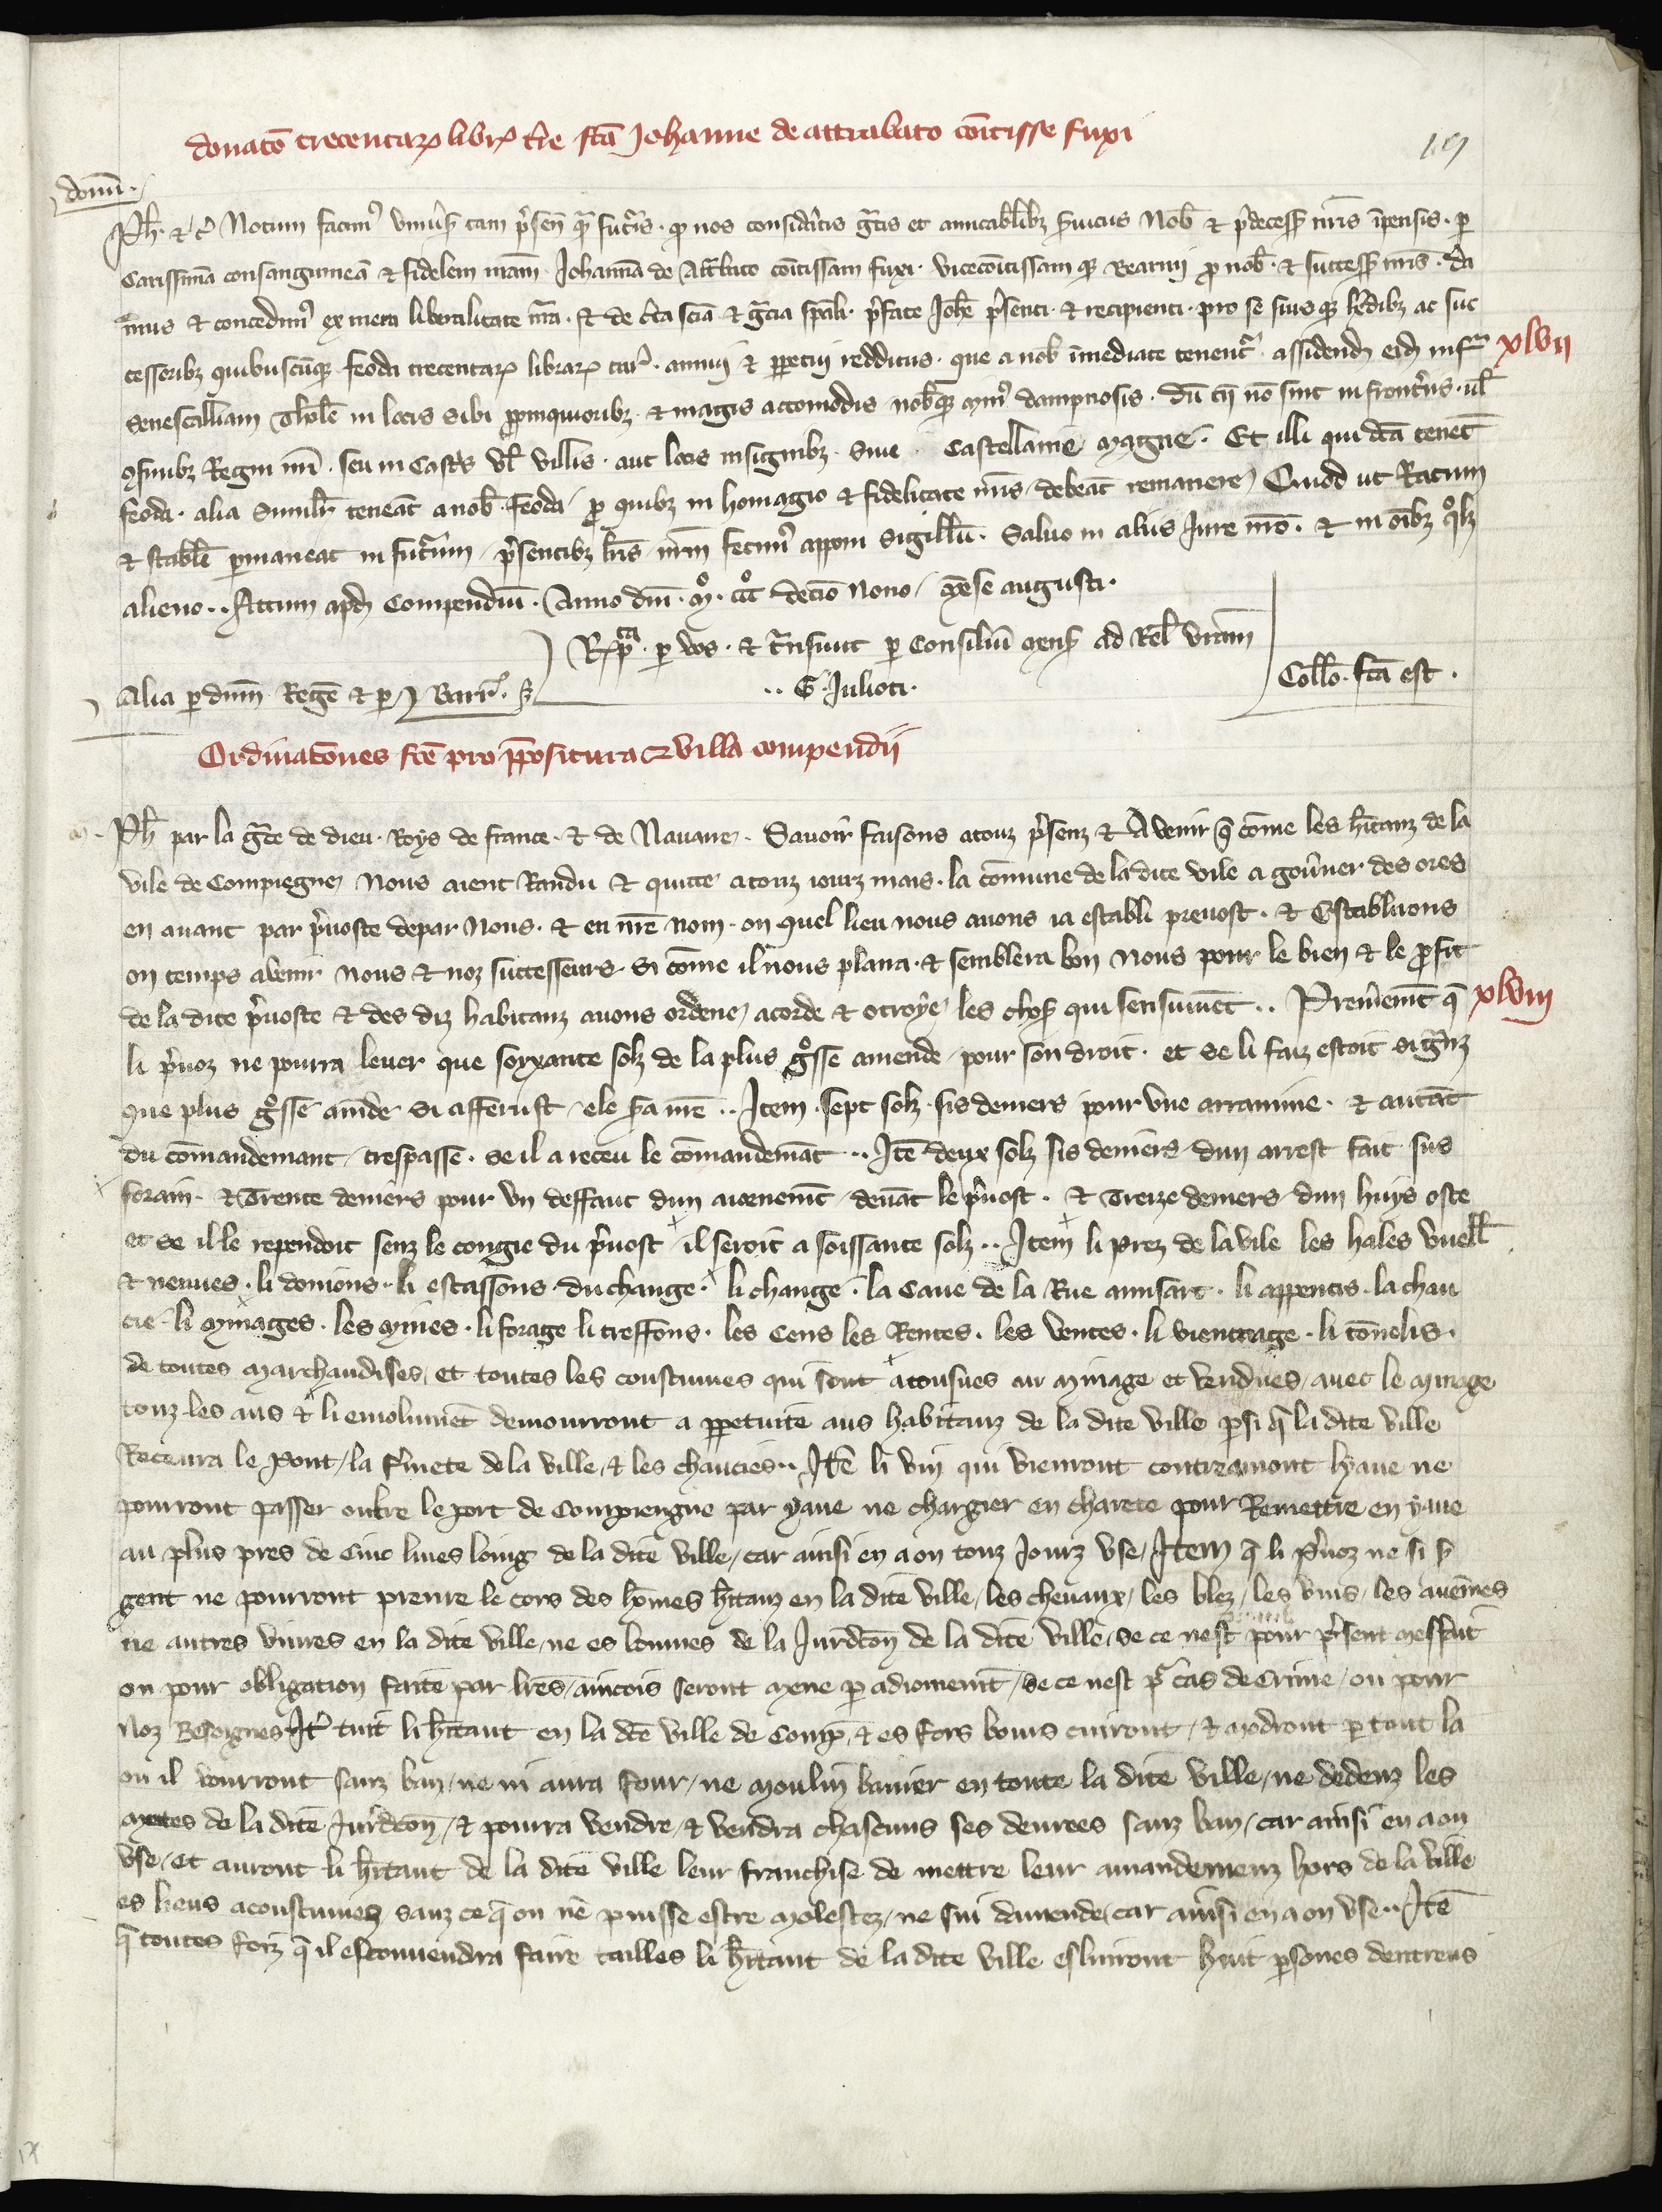 donatō trecentarꝝ librꝝ t̄re fc̄a Johanne de attrabato cōitisse fuxi
domī.
Ph̄. &c̄ Notum facimꝰ vniũs̄ tam p̄sen̄ qᷓ futuris. ꝙ nos considatis gratis et amicabilibꝫ s̄uiciis Nob̄ & p̄decess̄ nr̄is īpensis. ꝑ
Carissimā consanguineā & fidelem nr̄am. Johannā de Attrebato cōitissam fuxi. vicecōitissam qꝫ Bearnij ꝓ nob̄. & success̄ nr̄is. da
mus & concedimꝰ ex mera liberalitate nr̄a. & de c̄ta scīa & gr̄cia sp̄ali. p̄fate Joh̄e p̄senti. & recipienti. pro se suis qꝫ h̄edibꝫ ac suc
cessoribꝫ quibuscūqꝫ feoda trecentarꝝ librarꝝ tur̄. annuj & ꝑpetui redditus. que a nob̄ īmediate tenentᷣ. assidend̄ eid̄ infᷓ
xlvij
Senescalliam Tholē in locis sibi ꝓpinquioribꝫ. & magis accomodis nob̄qꝫ minꝰ dampnosis. dū tn̄ nō sint in fronteriis. ul̄
ꝯfinibꝫ Regni nr̄i. seu in Castris vl̄ villis. aut locis insignibꝫ. siue Castellanie magne. Et illi qui dc̄a tenēt
feoda. alia similr̄ teneāt a nob̄. feoda ꝓ quibꝫ in homagio & fidelitate nr̄is debeāt remanere Quod ut Ratum
& stabile permaneat in futurum p̄sentibꝫ lr̄is nr̄m fecimꝰ apponi sigillū. Saluo in aliis Jure nr̄o. & in oībꝫ qᵒlꝫ
alieno.. Actum apd̄ Compendiū. Anno dn̄i. mᵒ. cccᵒ decīo nono mēse augusti.
Rep̄ᵗᵃ. ꝑ vos. & tᷓnsiuit ꝑ Consiliū mens̄ ad Rel̄ vr̄am
Alia ꝑ dn̄m Regē & ꝑ J Barr̄.
.. G. Julioti.
Coll̄o. fc̄a est.
Ordinatōnes fc̄e pro p̄positura & villa compendii
Ph̄ par la gr̄ce de dieu. Roys de france. & de Nauarre. Sauoir faisons a touz p̄senz & Avenir q̄ cōme les h̄itanz de la
vile de Compiegne Nous aient Randu & quitte a touz iourz mais. la cōmune de la dite vile a gouũner des ores
en auant par p̄uoste depar Nous. & en nr̄e nom. on quel lieu nous auons ia establi preuost. & Establirons
on temps avenir nous & noz successeurs. Si cōme il nous plaira. & semblera bon Nous pour le bien & le ꝓfit
de la dite p̄uoste & des diz habitanz auons ordene acorde & otroye les choses qui sensuiuēt.. Premierem̄t q̄
xlviij
li p̄uoz ne pourra leuer que soixante solz de la plus gᵒsse amende pour son droit. et se li faiz estoit si gr̄nz
que plus gᵒsse am̄de si afferust ele s̄a nr̄e.. Item. sept solz sis deniers pour vne arramine. & autāt
du cōmandemant trespasse. se il a receu le cōmandemāt.. Itē deux solz sis deniers dun arrest fait sus
forain. & Trente deniers pour vn deffaut dun aiornemt̄ deuāt le p̄uost. & Treize deniers dun huys oste
et se il le rependoit senz le congie du p̄uost il seroit a soissante solz.. Item li prez de la vile les hales vuell̄
& neuues. li donions. li estassons du change. li change. la Caue de la Rue annsart. li appentis. la chau
cie. li minages. les mines. li forage li treffons. les Cens les Rentes. les ventes. li vientrage. li tōnelis.
de toutes marchandises et toutes les coustumes qui sont atonsues au minage et vendues auec le minage
touz les ans & li emolumēt demourront a ꝑpetuite aus habitanz de la dite ville ꝑsi q̄ la dite ville
Retenra le Pont la f̄mete de la ville & les chauciees.. Itē li vin qui vienront contreamont lyaue ne
pourront passer outre le port de Compiengne par yaue ne chargier en charete pour Remettre en yaue
au plus pres de Cinc liues loing de la dite ville car ainsi en a on touz Jourz vse Item q̄ li p̄uoz ne si s̄
gent ne pourront prenre le cors des hōmes h̄itanz en la dite ville les cheuaux les blez les vins les aueines
ne autres viures en la dite ville ne es bonnes de la Jurd̄cōn de la dite ville se ce nest pour p̄sent meffait
ou pour obligation faite par lr̄es aincois seront mene ꝑ adiornemt̄ se ce nest pᷣ cas de Crime ou pour
Noz Besoignes Itē tuit li h̄itant en la dc̄e ville de Comp̄ & es fors bours cuiront & modront ꝑ tout la
ou il vourront sanz ban ne ni aura four ne moulin banier en toute la dite ville ne dedenz les
metes de la dite Jurd̄cōn & pourra vendre & vendra chascuns ses denrees sanz ban car ainsi en a on
vse et auront li h̄itant de la dite ville leur franchise de mettre leur amandemenz hors de la ville
es lieus acoustumez sanz ce q̄ on nē puisse estre molestez ne siui damende car ainsi en a on vse.. Itē
q̄ toutes foiz q̄ il esconuendra faire tailles li h̄itant de la dite ville esliront huit ꝑsones dentreus